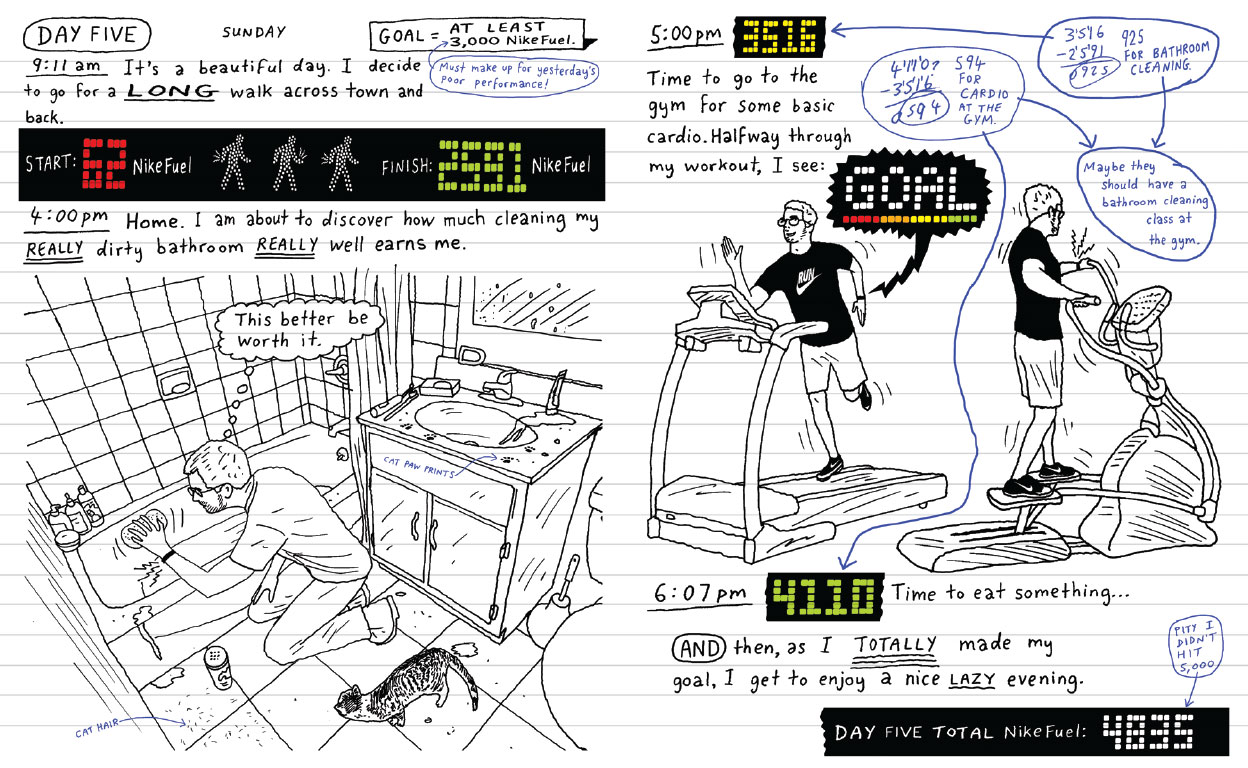 DAY FIVE
SUNDAY
GOAL = AT LEAST
3,000 NikeFuel.
Must make up for yesterday's
poor performance!
9:11 am It's a beautiful day. I decide
to go for a LONG walk across town and
back.
START: 62 NikeFuel
FINISH: 2591 NikeFuel
4:00pm Home. I am about to discover how much cleaning my
REALLY dirty bathroom REALLY well earns me.
This better be
worth it.
CAT PAW PRINTS
CAT HAIR
5:00pm 3516
3516
-2591
0925
925
FOR BATHROOM
CLEANING.
Time to go to the
gym for some basic
cardio. Halfway through
my workout, I see:
594
FOR
CARDIO
AT THE
GYM.
-3516
0594
GOAL
Maybe they
should have a
bathroom cleaning
class at
the gym.
RUN
6:07pm 4110 Time to eat something...
AND then, as I TOTALLY made my
goal, I get to enjoy a nice LAZY evening.
PITY I
DIDN'T
HIT
5,000
DAY FIVE TOTAL NikeFuel: 4835